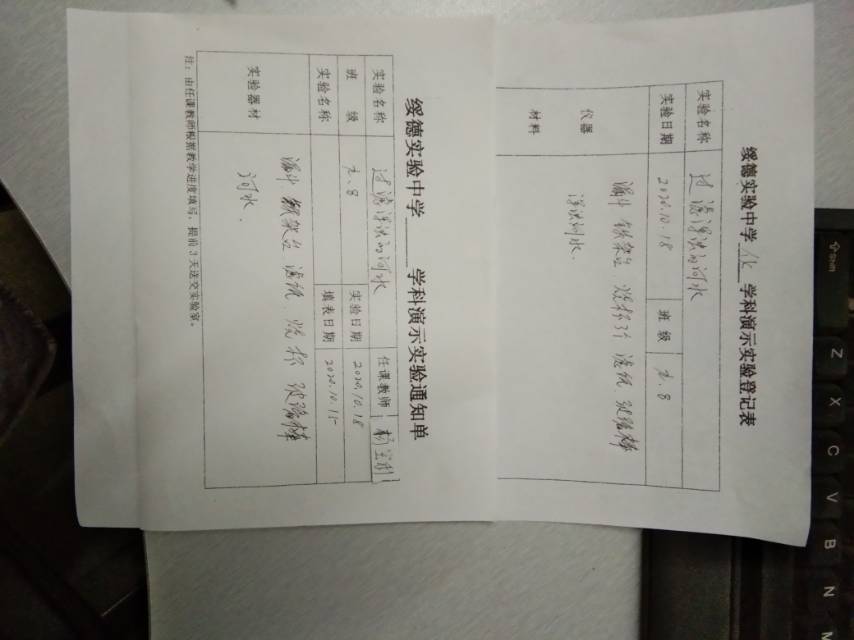 绥德实验中学 化 学科演示实验登记表
实验名称 过滤浑浊的河水
实验日期 2020.10.18 班级 九.8
仪器
材料
漏斗 铁架台 烧杯3个 滤纸 玻璃棒
浑浊河水.
绥德实验中学 学科演示实验通知单
实验名称 过滤浑浊的河水 任课教师 杨
班 级 九.8 实验日期 2020.10.18
实验名称 填表日期 2020.10.15
实验器材
漏斗 铁架台 滤纸 烧杯 玻璃棒
河水.
注：由任课教师根据教学进度填写，提前3天送交实验室。
Shift
Z
X
C
V
B
N
M